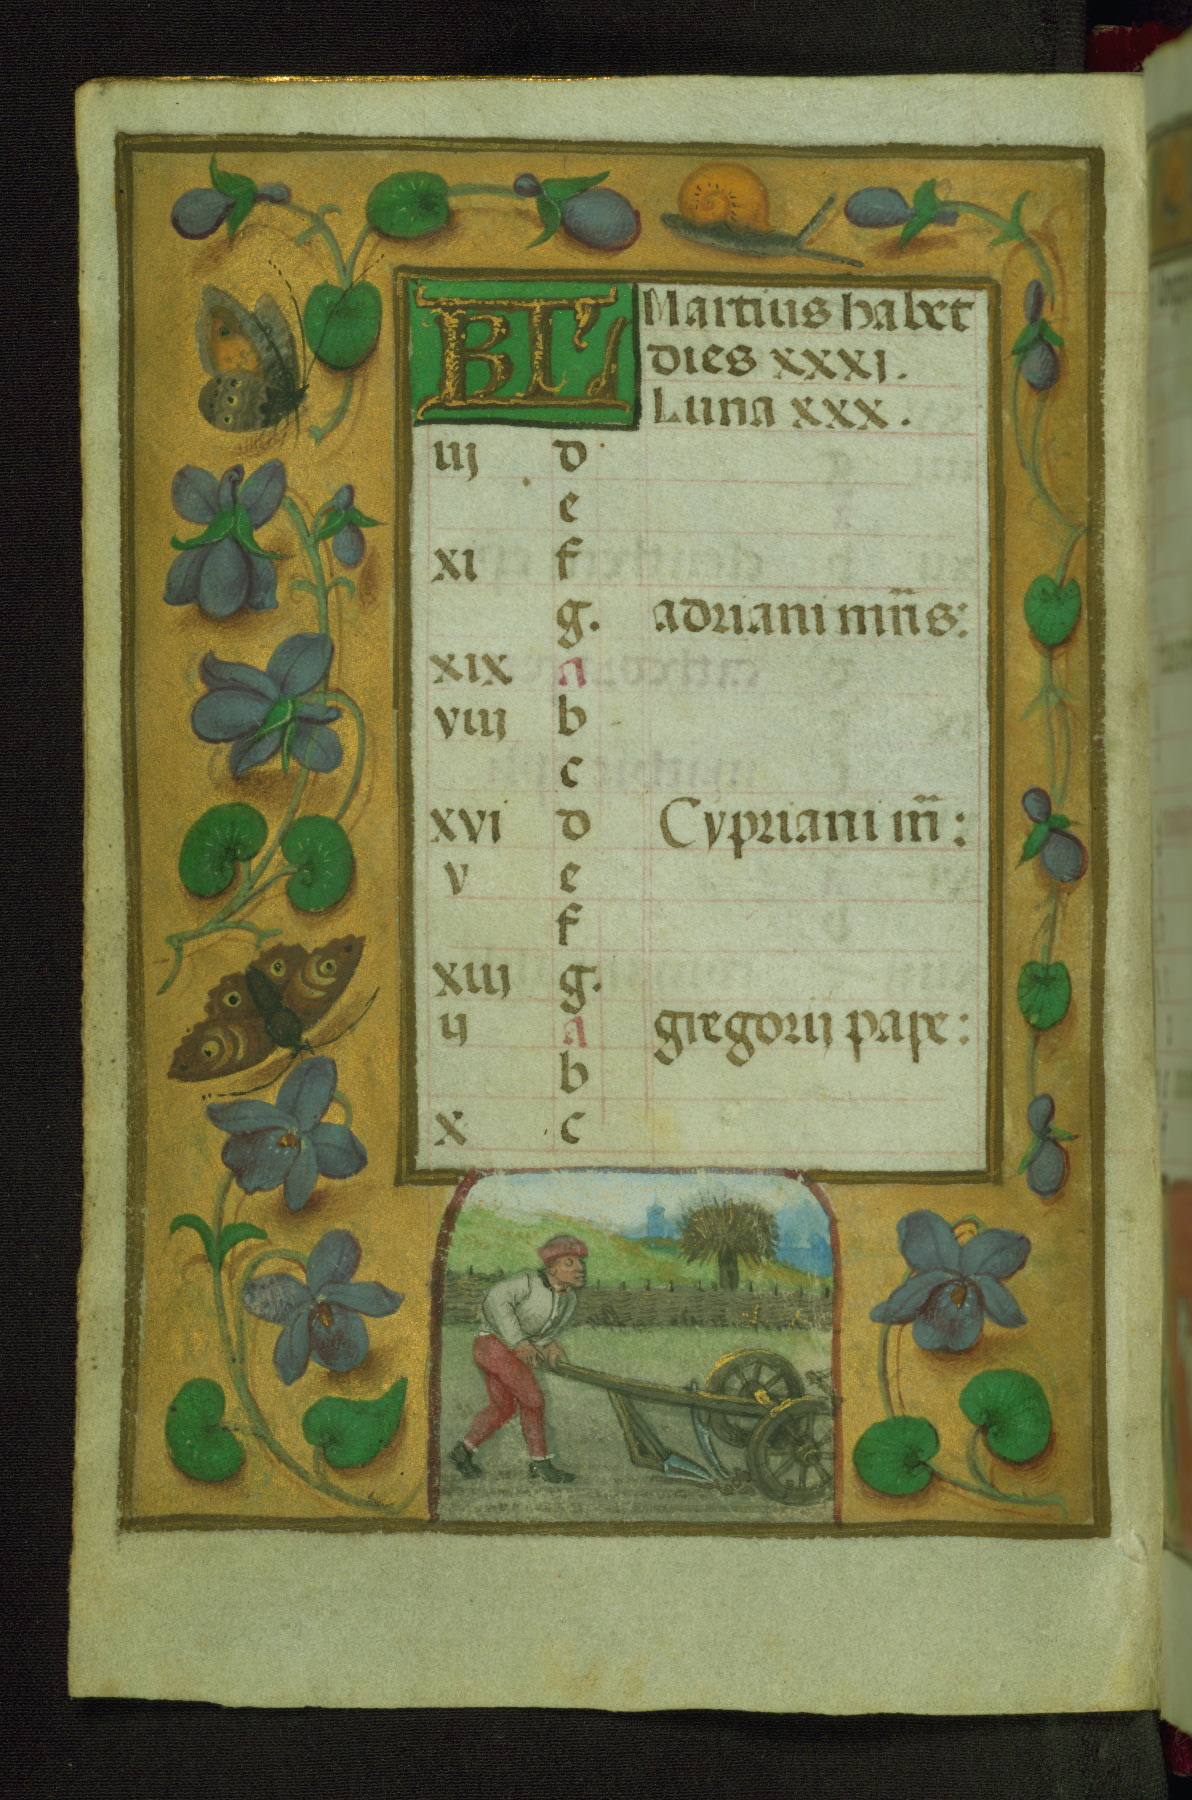 KL Martius habet
dies xxxi.
Luna xxx.
iij d
e
xi f
g. adriani mr̄is:
xix a
viij b
c
xvi d Cypriani m̄:
v e
f
xiij g.
ij a gregorij pape:
b
x c